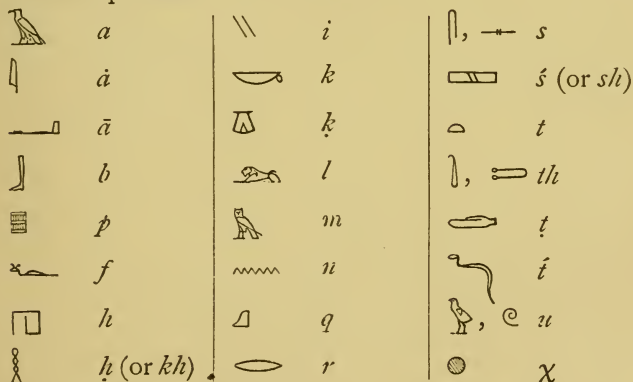 𓄿 a
𓇋 ȧ
𓂝 ā
𓃀 b
𓊪 p
𓆑 f
𓉔 h
𓎛 ḥ (or kh)
𓏭 i
𓎡 k
𓎼 ḳ
𓃭 l
𓅓 m
𓈖 n
𓈎 q
𓂋 r
𓋴, 𓊃 s
𓈙 ś (or sh)
𓏏 t
𓍘, 𓍿 th
𓂧 ṭ
𓆓 t́
𓅱, 𓏲 u
𓐍 χ